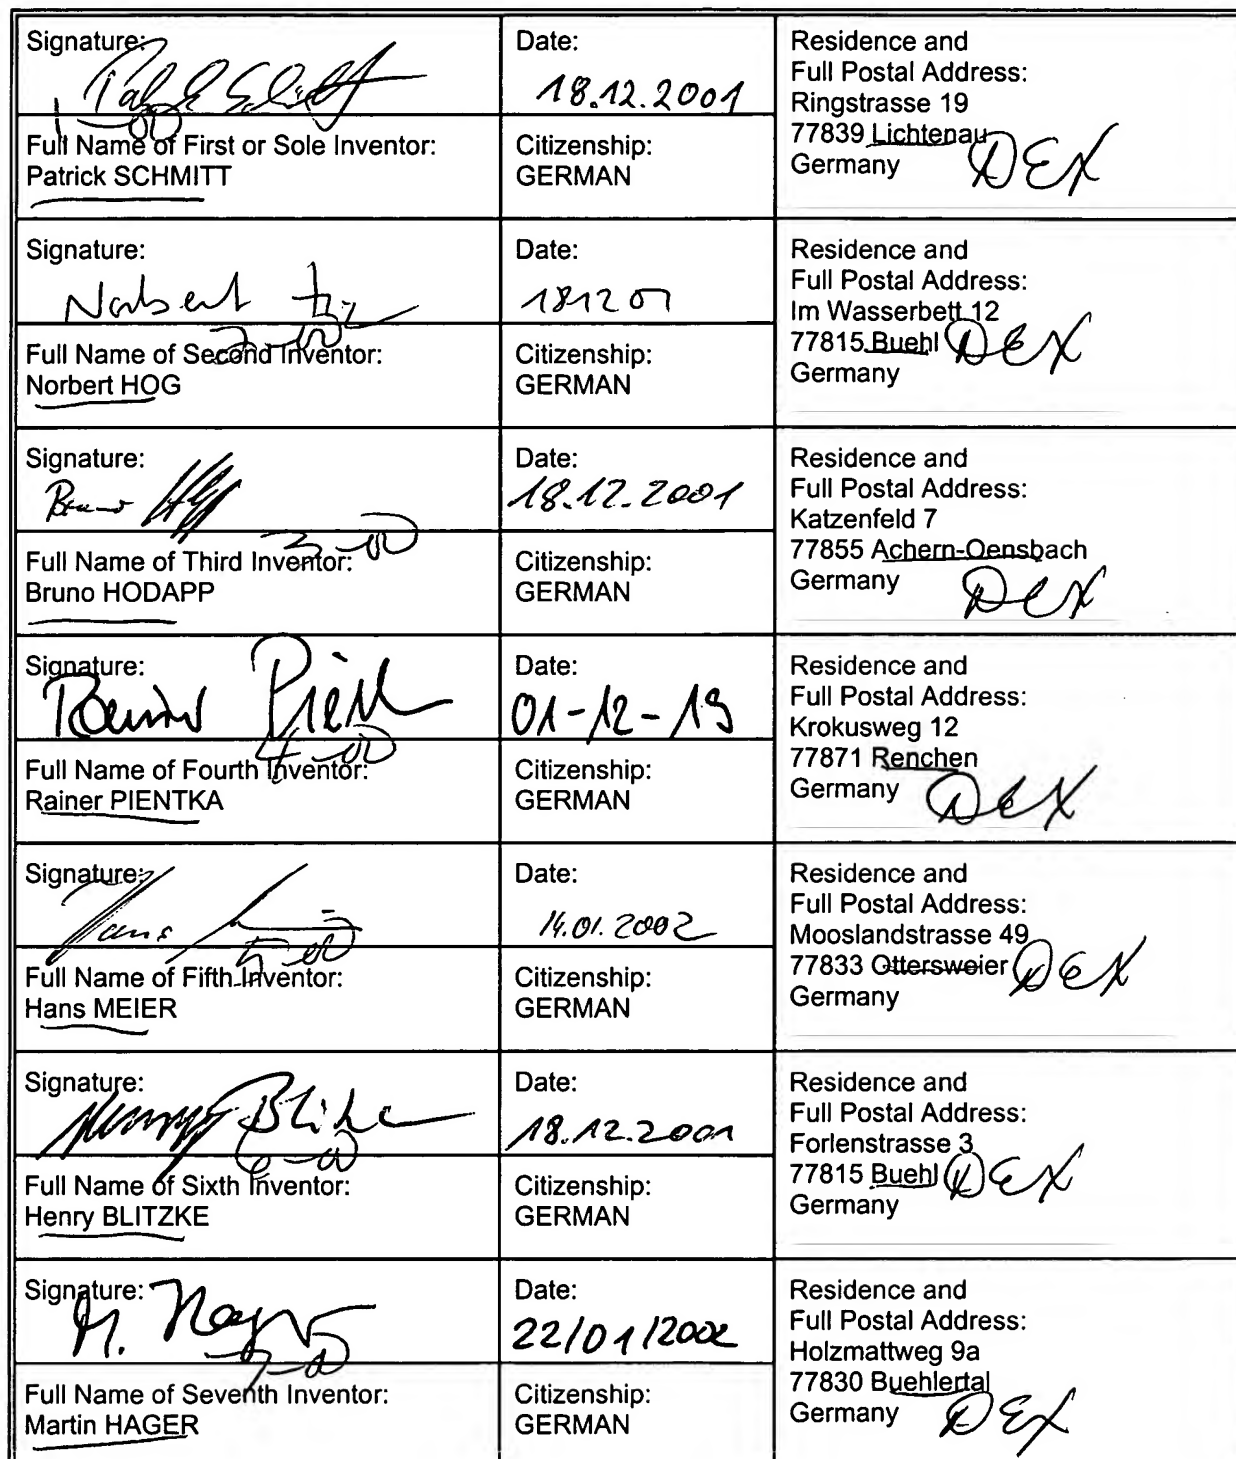 Signature:
Date:
18.12.2001
Residence and
Full Postal Address:
Ringstrasse 19
77839 Lichtenau
Germany
DEX
1-00
Full Name of First or Sole Inventor:
Patrick SCHMITT
Citizenship:
GERMAN
Signature:
Norbert
Date:
181201
Residence and
Full Postal Address:
Im Wasserbett 12
77815 Buehl
Germany
DEX
2-00
Full Name of Second Inventor:
Norbert HOG
Citizenship:
GERMAN
Signature:
Bruno
Date:
18.12.2001
Residence and
Full Postal Address:
Katzenfeld 7
77855 Achern-Oensbach
Germany
DEX
3-00
Full Name of Third Inventor:
Bruno HODAPP
Citizenship:
GERMAN
Signature:
Date:
01-12-19
Residence and
Full Postal Address:
Krokusweg 12
77871 Renchen
Germany
DEX
4-00
Full Name of Fourth Inventor:
Rainer PIENTKA
Citizenship:
GERMAN
Signature:
Hans
Date:
14.01.2002
Residence and
Full Postal Address:
Mooslandstrasse 49
77833 Ottersweier
Germany
DEX
5-00
Full Name of Fifth Inventor:
Hans MEIER
Citizenship:
GERMAN
Signature:
Date:
18.12.2001
Residence and
Full Postal Address:
Forlenstrasse 3
77815 Buehl
Germany
DEX
6-00
Full Name of Sixth Inventor:
Henry BLITZKE
Citizenship:
GERMAN
Signature:
M. Hager
Date:
22/01/2002
Residence and
Full Postal Address:
Holzmattweg 9a
77830 Buehlertal
Germany
DEX
7-00
Full Name of Seventh Inventor:
Martin HAGER
Citizenship:
GERMAN